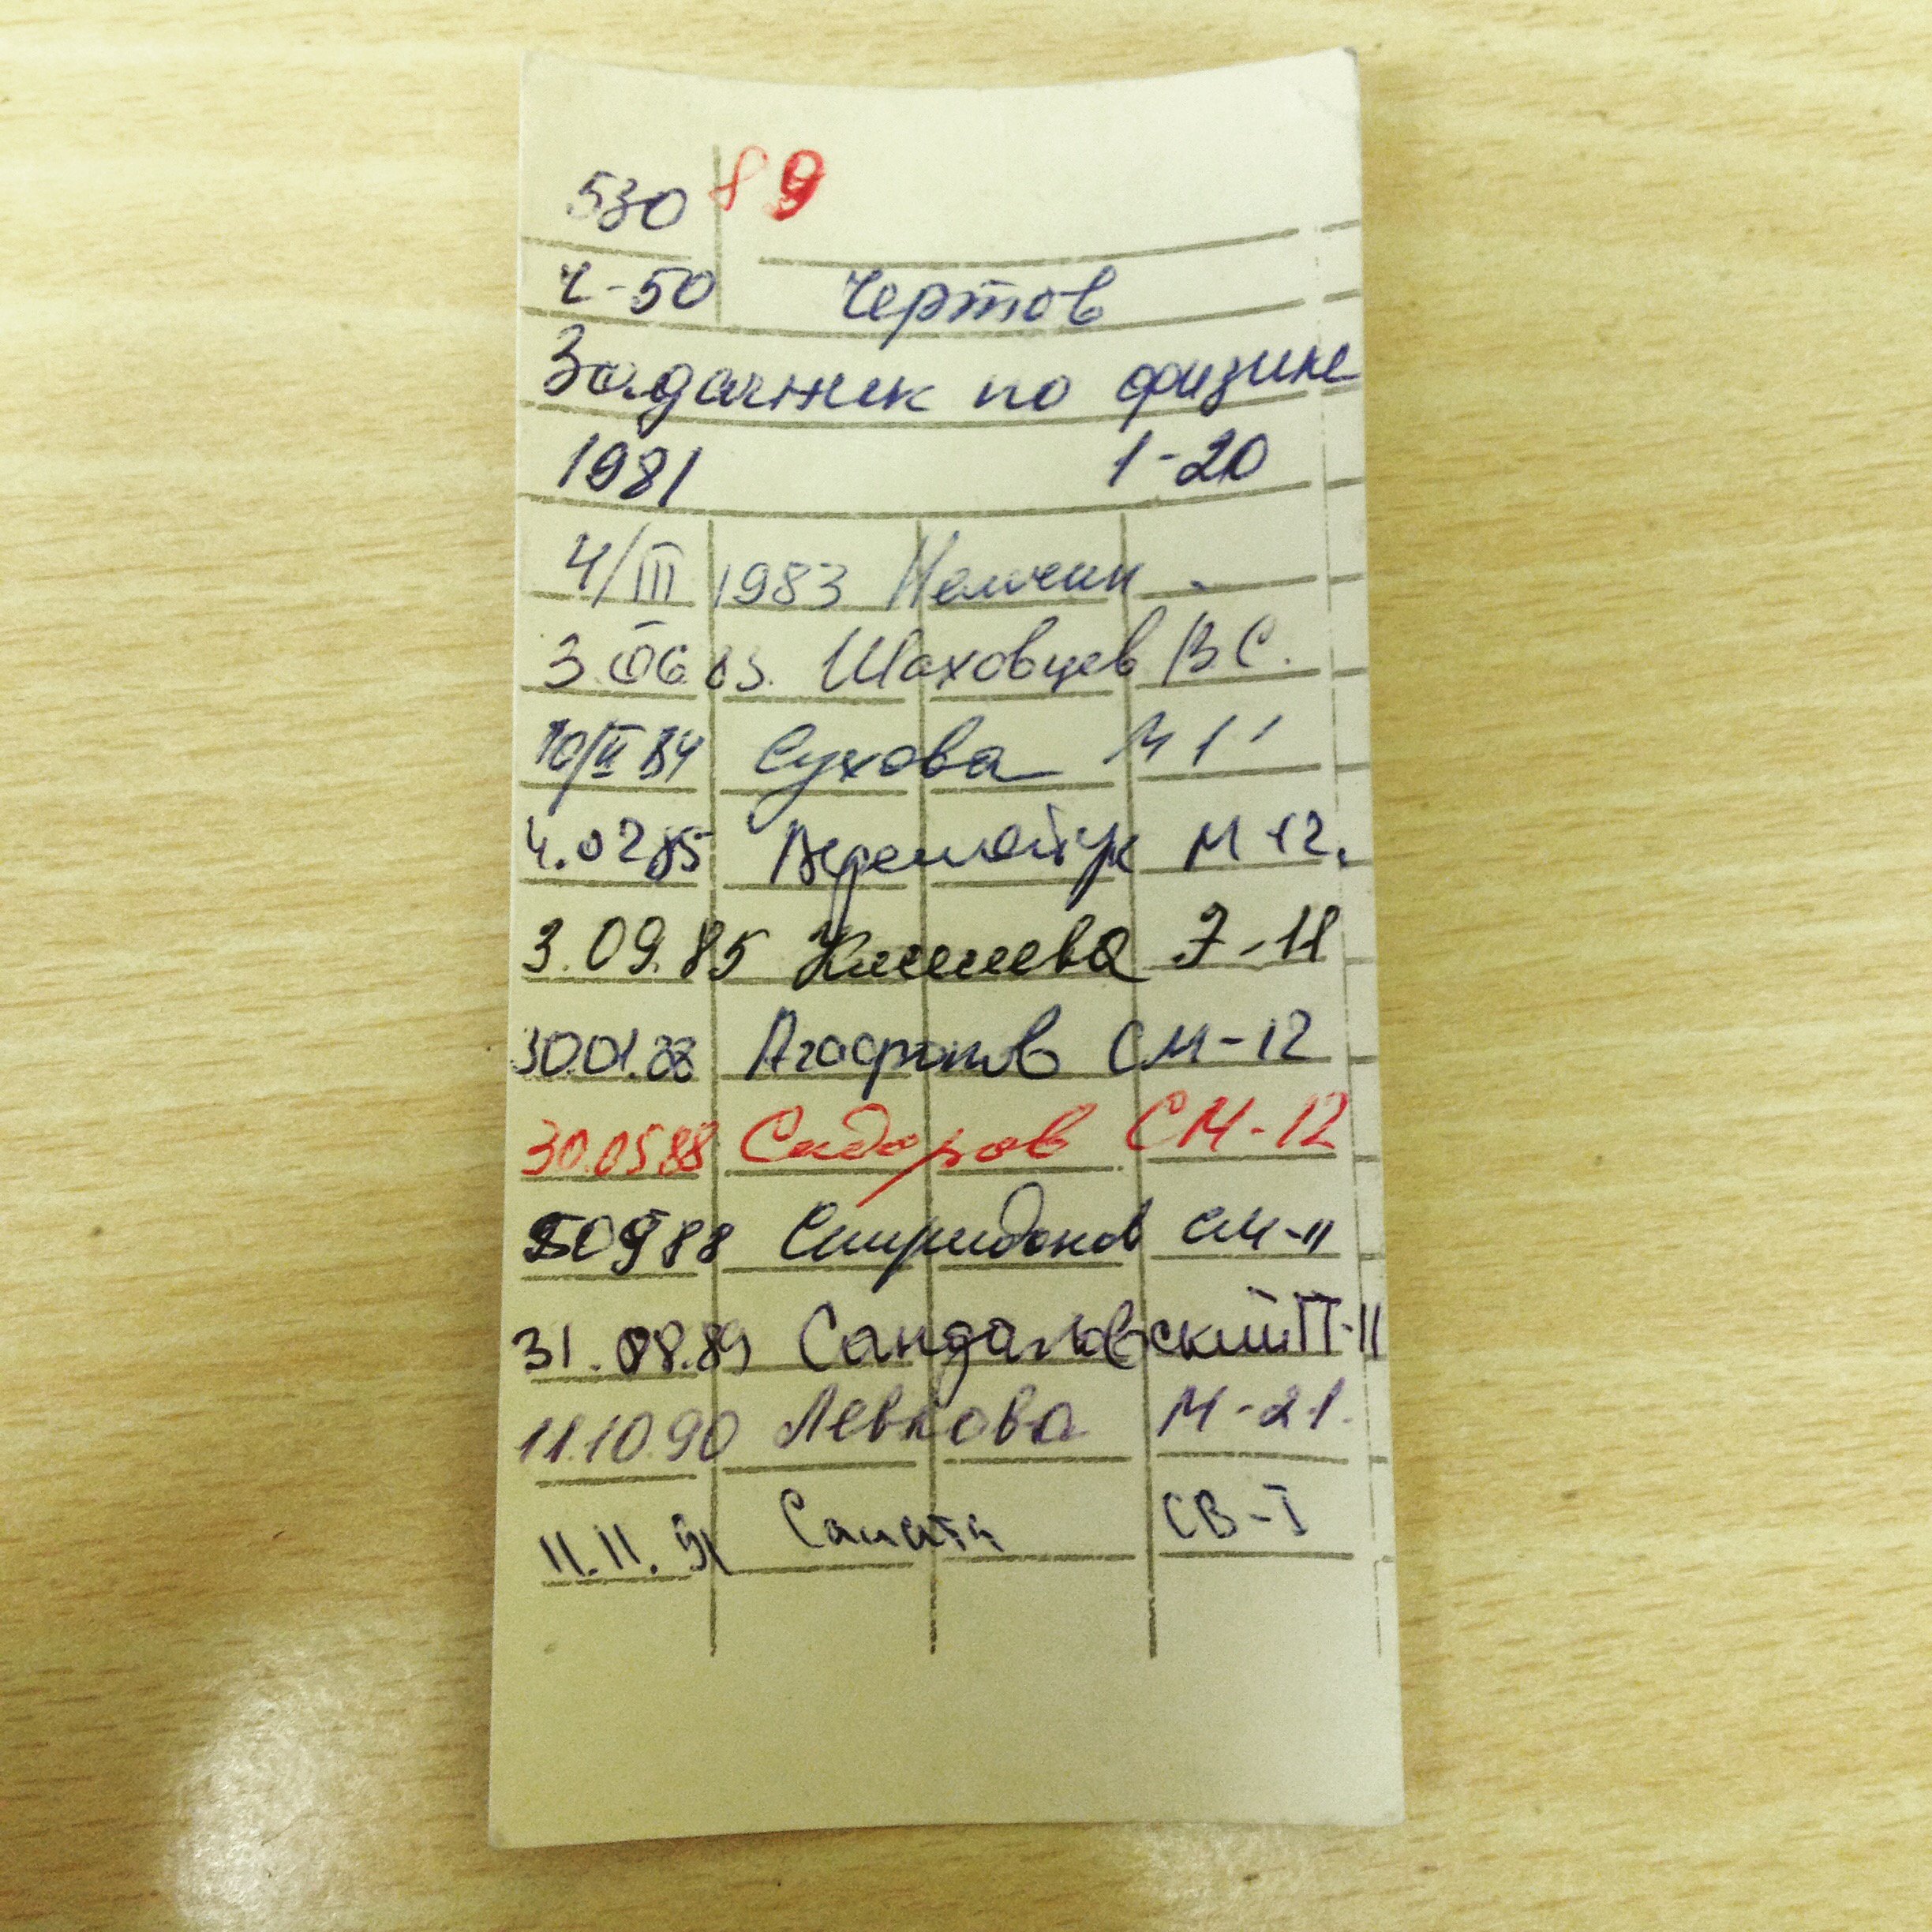 530 89
Ч-50 Чертов
Задачник по физике
1981 1-20
4/III 1983 Немчин
3.06.83. Шаховцев В С.
10/II 84 Сухова М 11
4.02 85 М 12.
3.09.85 Э-11
30.01.88 Агафонов СМ-12
30.05 88 Сидоров СМ-12
09 88 Спиридонов СМ-11
31.08.89 Сандаловский П-11
11.10.90 Левкова М-21.
11.11.91 СВ-I